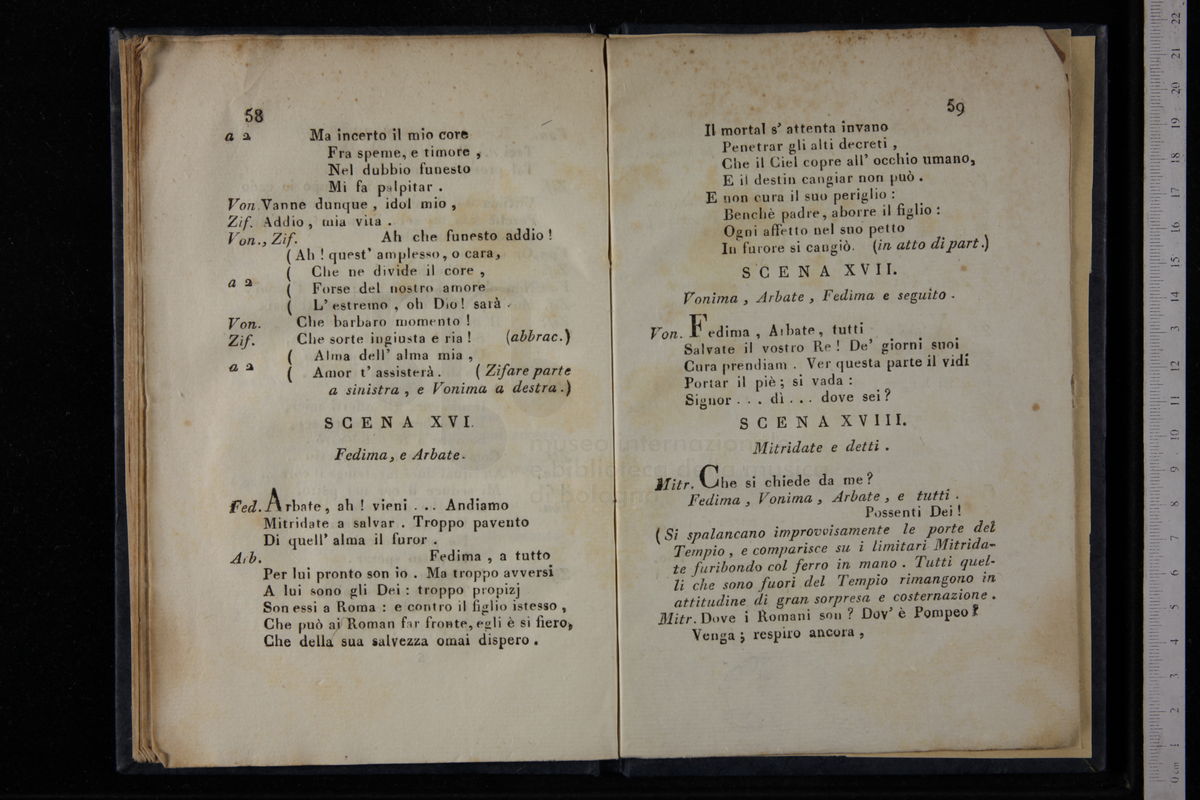 58
a 2 Ma incerto il mio core
Fra speme, e timore ,
Nel dubbio funesto
Mi fa palpitar .
Von. Vanne dunque , idol mio ,
Zif. Addio , mia vita .
Von., Zif. Ah che funesto addio !
( Ah ! quest' amplesso, o cara,
( Che ne divide il core ,
a 2 ( Forse del nostro amore
( L' estremo , oh Dio! sarà .
Von. Che barbaro momento !
Zif. Che sorte ingiusta e ria ! (abbrac.)
( Alma dell' alma mia ,
a 2 ( Amor t' assisterà . ( Zifare parte
a sinistra , e Vonima a destra .)
SCENA XVI.
Fedima, e Arbate.
Fed. Arbate, ah ! vieni . .. Andiamo
Mitridate a salvar . Troppo pavento
Di quell' alma il furor .
Arb. Fedima , a tutto
Per lui pronto son io . Ma troppo avversi
A lui sono gli Dei : troppo propizj
Son essi a Roma : e contro il figlio istesso ,
Che può ai Roman far fronte, egli è sì fiero,
Che della sua salvezza omai dispero .
59
Il mortal s' attenta invano
Penetrar gli alti decreti ,
Che il Ciel copre all' occhio umano,
E il destin cangiar non può .
E non cura il suo periglio :
Benchè padre, aborre il figlio :
Ogni affetto nel suo petto
In furore si cangiò. (in atto di part.)
SCENA XVII.
Vonima , Arbate , Fedima e seguito .
Von. Fedima , Arbate, tutti
Salvate il vostro Re ! De' giorni suoi
Cura prendiam . Ver questa parte il vidi
Portar il piè ; si vada :
Signor . . . dì . . . dove sei ?
SCENA XVIII.
Mitridate e detti .
Mitr. Che si chiede da me ?
Fedima , Vonima , Arbate , e tutti .
Possenti Dei !
( Si spalancano improvvisamente le porte del
Tempio , e comparisce su i limitari Mitrida-
te furibondo col ferro in mano . Tutti quel-
li che sono fuori del Tempio rimangono in
attitudine di gran sorpresa e costernazione .
Mitr. Dove i Romani son ? Dov' è Pompeo ?
Venga ; respiro ancora ,
museo internazionale
e biblioteca della musica
di bologna
0 cm 1 2 3 4 5 6 7 8 9 10 11 12 13 14 15 16 17 18 19 20 21 22